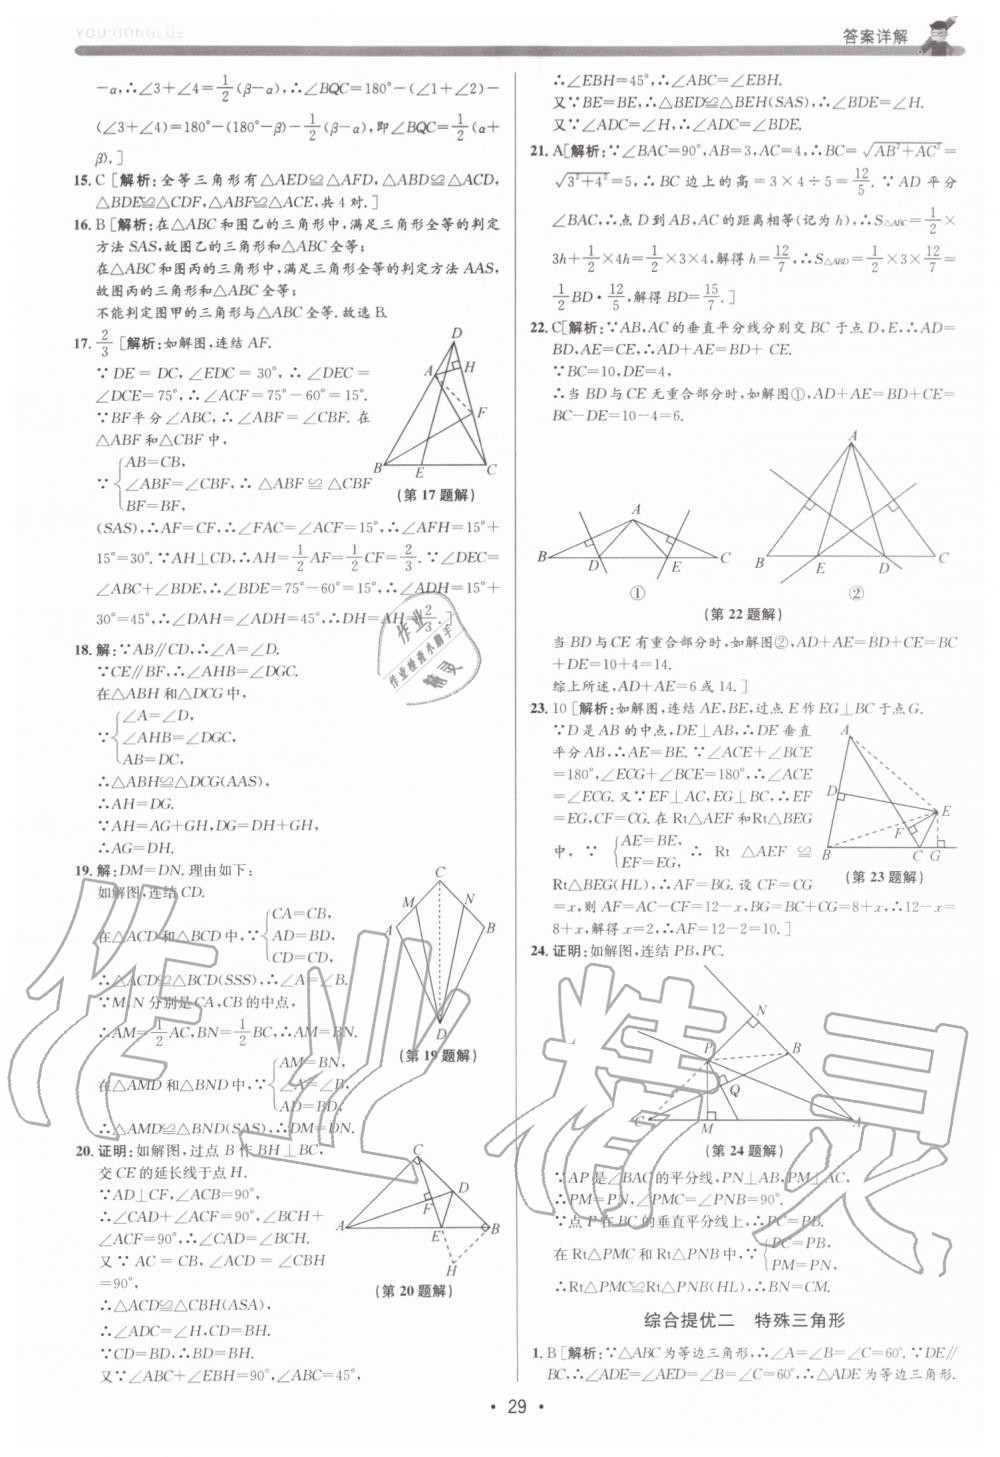 YOU GONGLÜE
答案详解
-α,∴∠3+∠4=1/2(β-α),∴∠BQC=180°-(∠1+∠2)-
(∠3+∠4)=180°-(180°-β)-1/2(β-α),即∠BQC=1/2(α+
β).]
15. C [解析:全等三角形有△AED≌△AFD,△ABD≌△ACD,
△BDE≌△CDF,△ABF≌△ACE,共4对.]
16. B [解析:在△ABC和图乙的三角形中,满足三角形全等的判定
方法SAS,故图乙的三角形和△ABC全等;
在△ABC和图丙的三角形中,满足三角形全等的判定方法AAS,
故图丙的三角形和△ABC全等;
不能判定图甲的三角形与△ABC全等.故选B.
17. 2/3 [解析:如解图,连结AF.
∵DE=DC,∠EDC=30°,∴∠DEC=
∠DCE=75°,∴∠ACF=75°-60°=15°.
∵BF平分∠ABC,∴∠ABF=∠CBF.在
△ABF和△CBF中,
AB=CB,
∵{∠ABF=∠CBF,∴△ABF≌△CBF
BF=BF,
D
A
H
F
B
E
C
(第17题解)
(SAS),∴AF=CF,∴∠FAC=∠ACF=15°,∴∠AFH=15°+
15°=30°.∵AH⊥CD,∴AH=1/2AF=1/2CF=2/3.∵∠DEC=
∠ABC+∠BDE,∴∠BDE=75°-60°=15°,∴∠ADH=15°+
30°=45°,∴∠DAH=∠ADH=45°,∴DH=AH=2/3.]
18. 解:∵AB∥CD,∴∠A=∠D.
∵CE∥BF,∴∠AHB=∠DGC.
在△ABH和△DCG中,
∠A=∠D,
∵{∠AHB=∠DGC,
AB=DC,
∴△ABH≌△DCG(AAS),
∴AH=DG.
∵AH=AG+GH,DG=DH+GH,
∴AG=DH.
19. 解:DM=DN.理由如下:
如解图,连结CD.
CA=CB,
在△ACD和△BCD中,∵{AD=BD,
CD=CD,
∴△ACD≌△BCD(SSS),∴∠A=∠B.
∵M,N分别是CA,CB的中点,
∴AM=1/2AC,BN=1/2BC,∴AM=BN.
AM=BN,
在△AMD和△BND中,∵{∠A=∠B,
AD=BD,
∴△AMD≌△BND(SAS),∴DM=DN.
C
M
N
A
B
D
(第19题解)
20. 证明:如解图,过点B作BH⊥BC,
交CE的延长线于点H.
∵AD⊥CF,∠ACB=90°,
∴∠CAD+∠ACF=90°,∠BCH+
∠ACF=90°,∴∠CAD=∠BCH.
又∵AC=CB,∠ACD=∠CBH
=90°,
∴△ACD≌△CBH(ASA),
∴∠ADC=∠H,CD=BH.
∵CD=BD,∴BD=BH.
又∵∠ABC+∠EBH=90°,∠ABC=45°,
C
D
F
A
E
B
H
(第20题解)
∴∠EBH=45°,∴∠ABC=∠EBH.
又∵BE=BE,∴△BED≌△BEH(SAS),∴∠BDE=∠H.
又∵∠ADC=∠H,∴∠ADC=∠BDE.
21. A[解析:∵∠BAC=90°,AB=3,AC=4,∴BC=√(AB²+AC²)=
√(3²+4²)=5,∴BC边上的高=3×4÷5=12/5.∵AD平分
∠BAC,∴点D到AB,AC的距离相等(记为h),∴S△ABC=1/2×
3h+1/2×4h=1/2×3×4,解得h=12/7,∴S△ABD=1/2×3×12/7=
1/2BD·12/5,解得BD=15/7.]
22. C[解析:∵AB,AC的垂直平分线分别交BC于点D,E,∴AD=
BD,AE=CE,∴AD+AE=BD+CE.
∵BC=10,DE=4,
∴当BD与CE无重合部分时,如解图①,AD+AE=BD+CE=
BC-DE=10-4=6.
A
B
D
E
C
①
A
B
E
D
C
②
(第22题解)
当BD与CE有重合部分时,如解图②,AD+AE=BD+CE=BC
+DE=10+4=14.
综上所述,AD+AE=6或14.]
23. 10 [解析:如解图,连结AE,BE,过点E作EG⊥BC于点G.
∵D是AB的中点,DE⊥AB,∴DE垂直
平分AB,∴AE=BE.∵∠ACE+∠BCE
=180°,∠ECG+∠BCE=180°,∴∠ACE
=∠ECG.又∵EF⊥AC,EG⊥BC,∴EF
=EG,CF=CG.在Rt△AEF和Rt△BEG
中,∵{AE=BE,
EF=EG,
∴Rt△AEF≌
A
D
E
F
B
C
G
(第23题解)
Rt△BEG(HL),∴AF=BG.设CF=CG
=x,则AF=AC-CF=12-x,BG=BC+CG=8+x,∴12-x=
8+x,解得x=2,∴AF=12-2=10.]
24. 证明:如解图,连结PB,PC.
N
P
B
Q
C
M
A
(第24题解)
∵AP是∠BAC的平分线,PN⊥AB,PM⊥AC,
∴PM=PN,∠PMC=∠PNB=90°.
∵点P在BC的垂直平分线上,∴PC=PB.
在Rt△PMC和Rt△PNB中,∵{PC=PB,
PM=PN,
∴Rt△PMC≌Rt△PNB(HL),∴BN=CM.
综合提优二 特殊三角形
1. B [解析:∵△ABC为等边三角形,∴∠A=∠B=∠C=60°.∵DE∥
BC,∴∠ADE=∠AED=∠B=∠C=60°,∴△ADE为等边三角形.
作业
作业检查小助手
精灵
作业精灵
· 29 ·